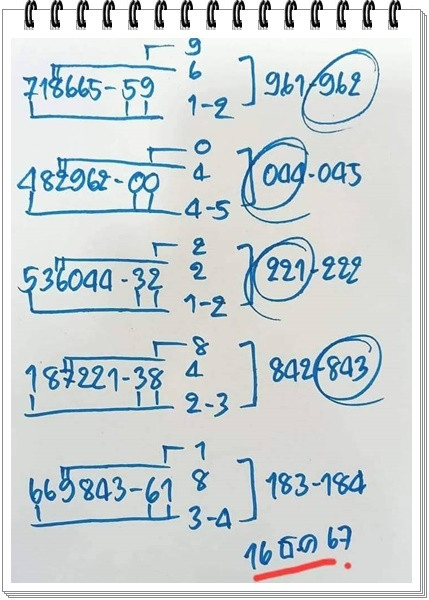 9
6
718665-59 961-962
1-2
0
4
482962-00 044-045
4-5
2
2
536044-32 221-222
1-2
8
4
187221-38 842-843
2-3
1
8
669843-61 183-184
3-4
16 ธค 67